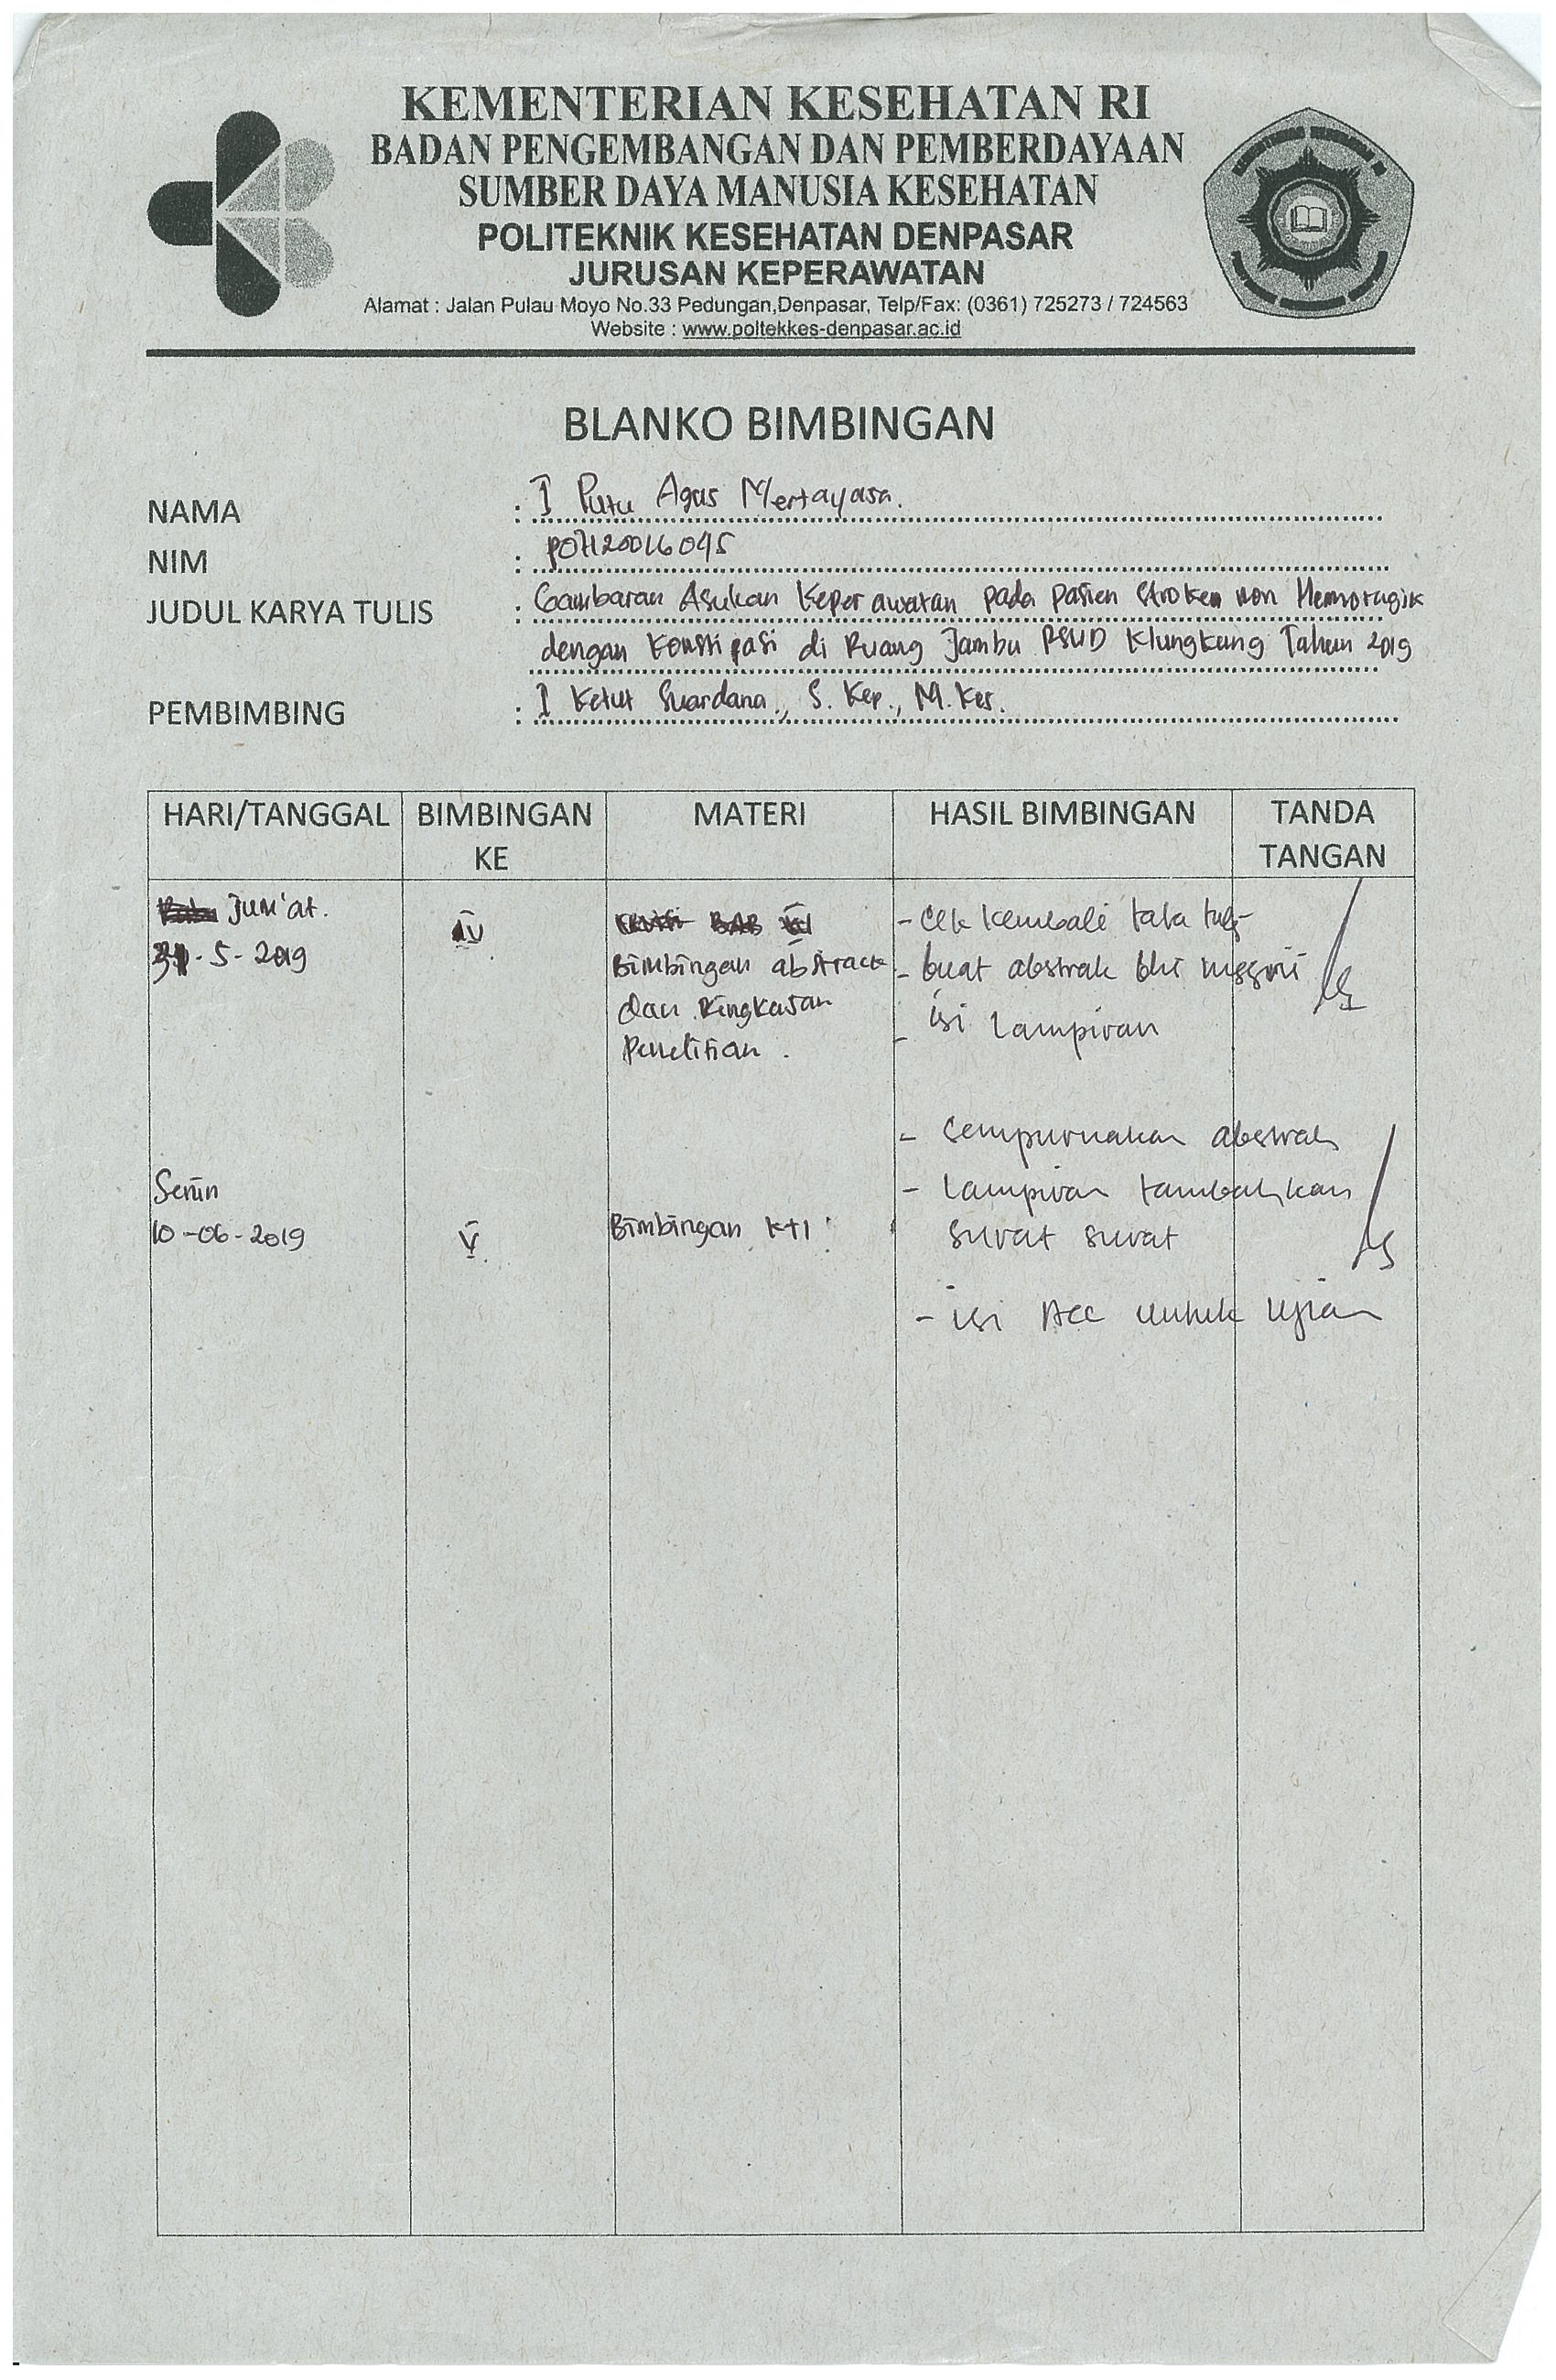 KEMENTERIAN KESEHATAN RI
BADAN PENGEMBANGAN DAN PEMBERDAYAAN
SUMBER DAYA MANUSIA KESEHATAN
POLITEKNIK KESEHATAN DENPASAR
JURUSAN KEPERAWATAN
Alamat : Jalan Pulau Moyo No.33 Pedungan,Denpasar, Telp/Fax: (0361) 725273 / 724563
Website : www.poltekkes-denpasar.ac.id
BLANKO BIMBINGAN
NAMA : I Putu Agus Mertayasa.
NIM : P07120016045
JUDUL KARYA TULIS : Gambaran Asuhan Keperawatan pada pasien Stroke non Hemoragik
dengan Konstipasi di Ruang Jambu RSUD Klungkung Tahun 2019
PEMBIMBING : I Ketut Suardana, S. Kep., M. Kes.
HARI/TANGGAL BIMBINGAN KE MATERI HASIL BIMBINGAN TANDA TANGAN
Jum'at.
31-5-2019
IV
Bimbingan abstract
dan Ringkasan
Penelitian.
- cek kembali tata
- buat abstrak bhs inggris
- isi Lampiran
Senin
10-06-2019
V
Bimbingan KTI
- Sempurnakan abstrak
- Lampiran tambahkan
surat surat
- isi Acc untuk ujian